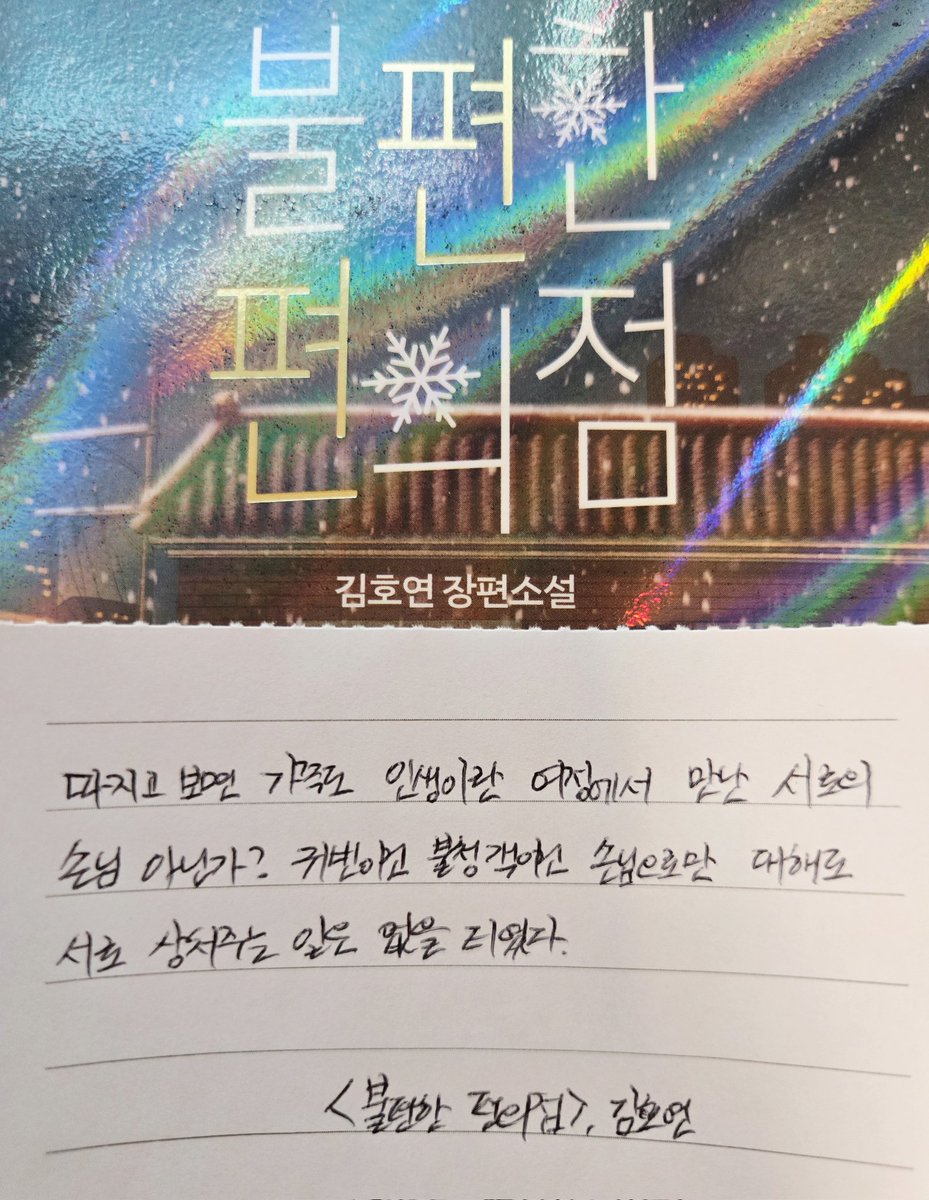 불편한
편의점
김호연 장편소설
따지고 보면 가족도 인생이란 여정에서 만난 서로의
손님 아닌가? 귀빈이건 불청객이건 손님으로만 대해도
서로 상처주는 일은 없을 터였다.
<불편한 편의점>, 김호연